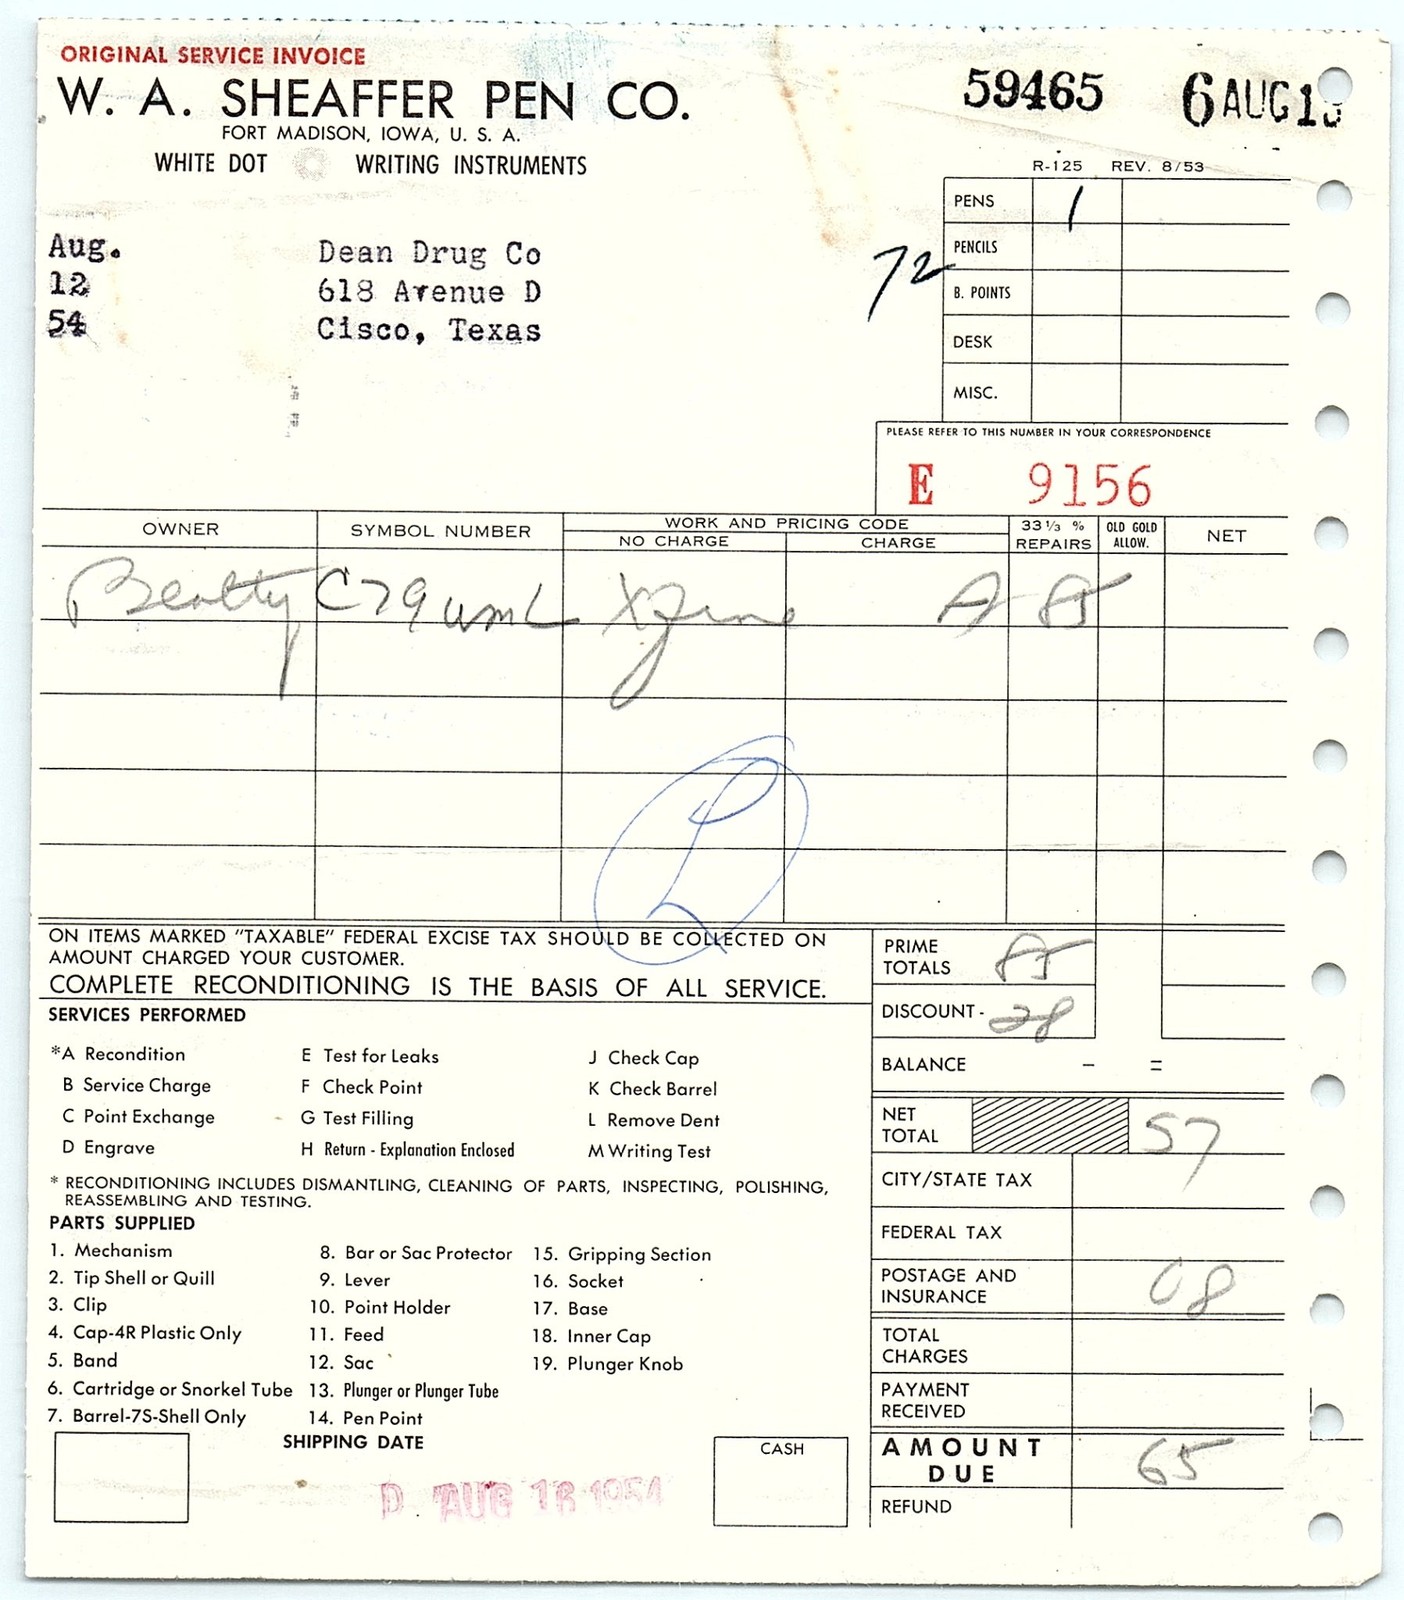 ORIGINAL SERVICE INVOICE
W. A. SHEAFFER PEN CO.
FORT MADISON, IOWA, U. S. A.
WHITE DOT WRITING INSTRUMENTS
59465 6 AUG 1
R-125 REV. 8/53
PENS 1
PENCILS
72
B. POINTS
DESK
MISC.
Aug. Dean Drug Co
12 618 Avenue D
54 Cisco, Texas
PLEASE REFER TO THIS NUMBER IN YOUR CORRESPONDENCE
E 9156
OWNER SYMBOL NUMBER WORK AND PRICING CODE 33 1/3 % REPAIRS OLD GOLD ALLOW. NET
NO CHARGE CHARGE
Beatty C79 A 85
L
ON ITEMS MARKED "TAXABLE" FEDERAL EXCISE TAX SHOULD BE COLLECTED ON
AMOUNT CHARGED YOUR CUSTOMER.
COMPLETE RECONDITIONING IS THE BASIS OF ALL SERVICE.
SERVICES PERFORMED
*A Recondition E Test for Leaks J Check Cap
B Service Charge F Check Point K Check Barrel
C Point Exchange G Test Filling L Remove Dent
D Engrave H Return - Explanation Enclosed M Writing Test
* RECONDITIONING INCLUDES DISMANTLING, CLEANING OF PARTS, INSPECTING, POLISHING,
REASSEMBLING AND TESTING.
PARTS SUPPLIED
1. Mechanism 8. Bar or Sac Protector 15. Gripping Section
2. Tip Shell or Quill 9. Lever 16. Socket
3. Clip 10. Point Holder 17. Base
4. Cap-4R Plastic Only 11. Feed 18. Inner Cap
5. Band 12. Sac 19. Plunger Knob
6. Cartridge or Snorkel Tube 13. Plunger or Plunger Tube
7. Barrel-7S-Shell Only 14. Pen Point
SHIPPING DATE
D AUG 16 1954
CASH
PRIME TOTALS 85
DISCOUNT - 28
BALANCE - =
NET TOTAL 57
CITY/STATE TAX
FEDERAL TAX
POSTAGE AND INSURANCE 08
TOTAL CHARGES
PAYMENT RECEIVED
AMOUNT DUE 65
REFUND